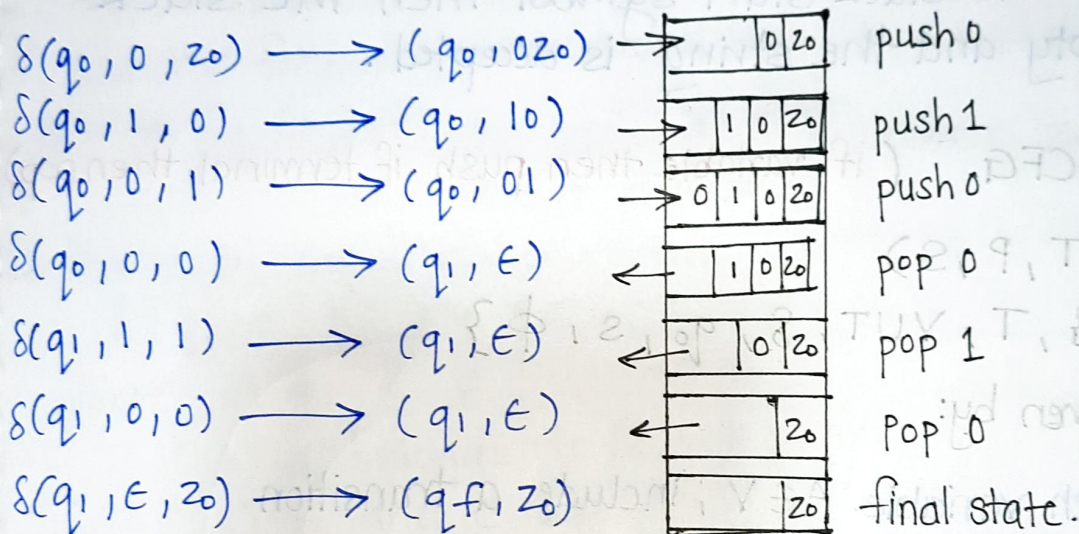 δ(q0, 0, z0) → (q0, 0z0) → 0 z0 push 0
δ(q0, 1, 0) → (q0, 10) → 1 0 z0 push 1
δ(q0, 0, 1) → (q0, 01) → 0 1 0 z0 push 0
δ(q0, 0, 0) → (q1, ϵ) ← 1 0 z0 pop 0
δ(q1, 1, 1) → (q1, ϵ) ← 0 z0 pop 1
δ(q1, 0, 0) → (q1, ϵ) ← z0 pop 0
δ(q1, ϵ, z0) → (qf, z0) z0 final state.